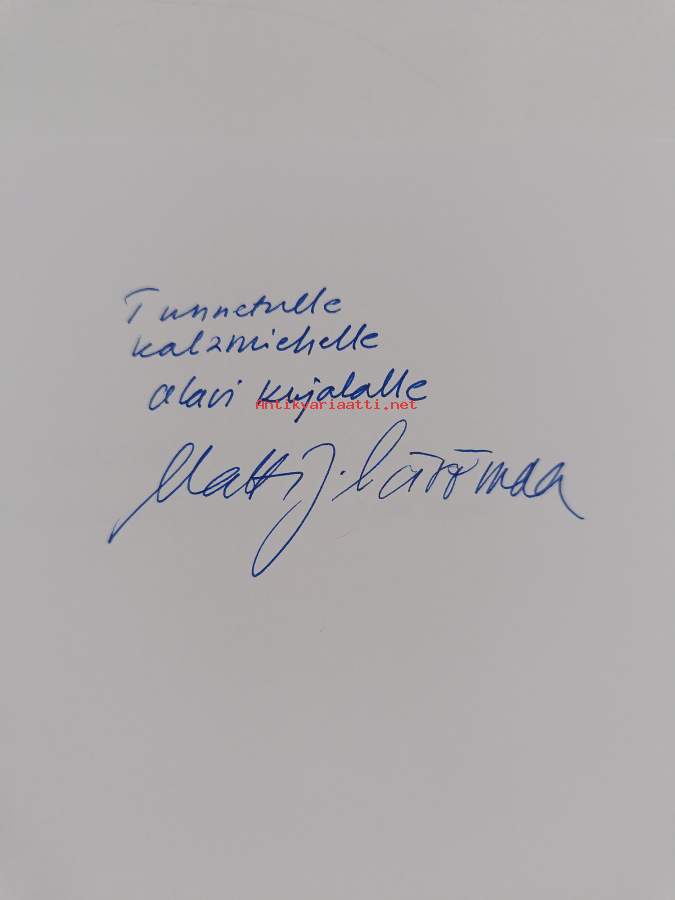 Tunnetulle
kalamiehelle
Olavi Kujalalle
Antikvariaatti.net
Matti J.